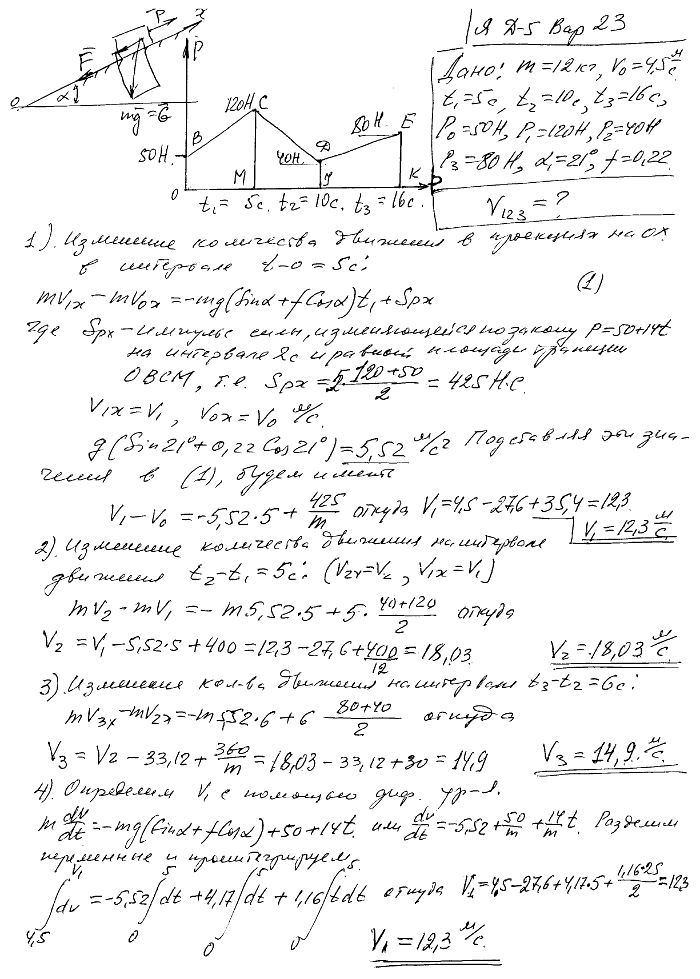 Я Д-5 Вар 23
Дано: m=12кг, V₀=4,5 м/с
t₁=5с, t₂=10с, t₃=16с,
P₀=50Н, P₁=120Н, P₂=40Н
P₃=80Н, α₁=21°, f=0,22
V₁₂₃=?
P x
F P
O α
mg=G
120Н C
B 80Н E
50Н 40Н Д
O M K
t₁=5с. t₂=10с. t₃=16с.
1). Изменение количества движения в проекциях на ох
в интервале t-0=5с:
mV₁ₓ-mV₀ₓ=-mg(Sinα+fCosα)t₁+Spx (1)
где Spx-импульс силы, изменяющейся по закону P=50+14t
на интервале 2с и равной площади трапеции
ОВСМ, т.е. Spx=5 (120+50)/2=425Н·с.
V₁ₓ=V₁, V₀ₓ=V₀ м/с.
g(Sin21°+0,22Cos21°)=5,52 м/с² Подставляя эти зна-
чения в (1), будем иметь
V₁-V₀=-5,52·5+425/m откуда V₁=4,5-27,6+35,4=12,3.
V₁=12,3 м/с
2). Изменение количества движения на интервале
движения t₂-t₁=5с: (V₂ₓ=V₂, V₁ₓ=V₁)
mV₂-mV₁=-m5,52·5+5·(40+120)/2 откуда
V₂=V₁-5,52·5+400=12,3-27,6+400/12=18,03. V₂=18,03 м/с.
3). Изменение кол-ва движения на интервале t₃-t₂=6с:
mV₃ₓ-mV₂ₓ=-m5,52·6+6 (80+40)/2 откуда
V₃=V₂-33,12+360/m=18,03-33,12+30=14,9 V₃=14,9 м/с.
4). Определим V₁ с помощью диф. ур-я.
m dv/dt=-mg(Sinα+fCosα)+50+14t. или dv/dt=-5,52+50/m+14/m t. Разделим
переменные и проинтегрируем
∫dv=-5,52∫dt+4,17∫dt+1,16∫tdt откуда V₁=4,5-27,6+4,17·5+1,16·25/2=12,3
V₁ 5 5 5
4,5 0 0 0
V₁=12,3 м/с.